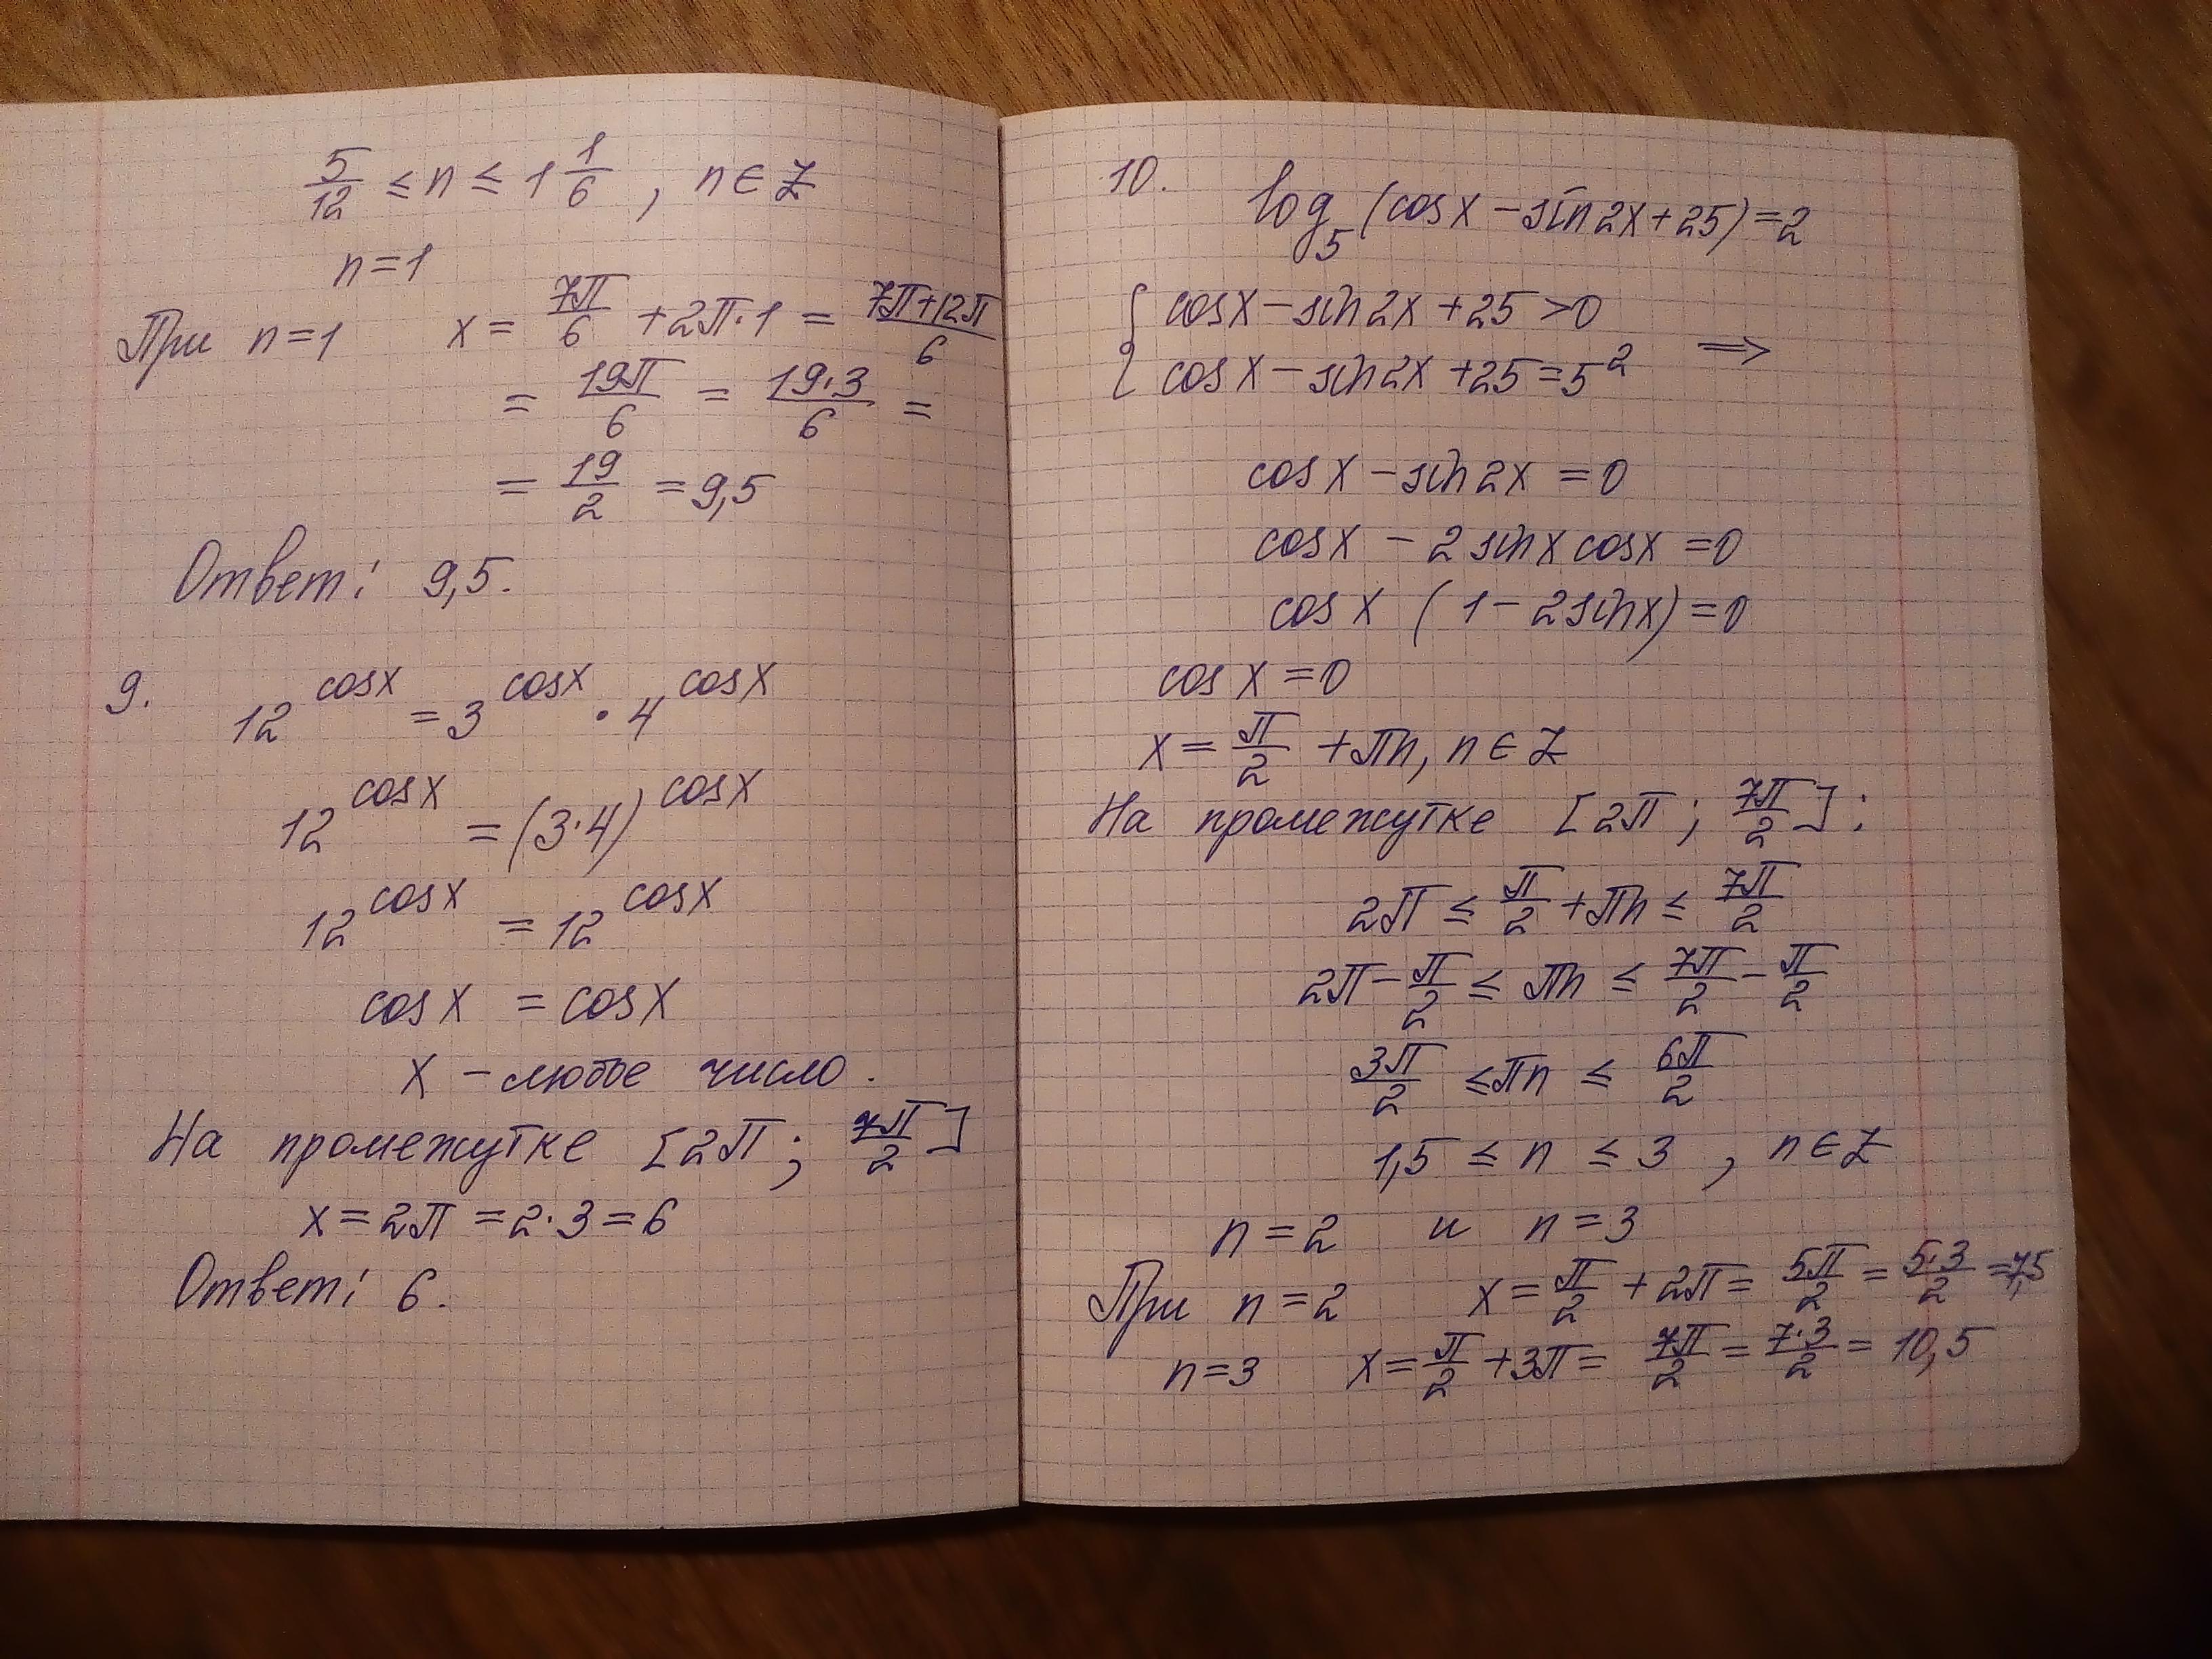 5/12 ≤ n ≤ 1 1/6 , n ∈ Z
n=1
При n=1 x = 7π/6 + 2π·1 = 7π+12π/6
= 19π/6 = 19·3/6 =
= 19/2 = 9,5
Ответ: 9,5.
9. 12^cosx = 3^cosx · 4^cosx
12^cosx = (3·4)^cosx
12^cosx = 12^cosx
cosx = cosx
x – любое число.
На промежутке [2π ; 7π/2]
x = 2π = 2·3 = 6
Ответ: 6.
10. log₅(cosx – sin2x + 25) = 2
{ cosx – sin2x + 25 > 0
cosx – sin2x + 25 = 5² ⇒
cosx – sin2x = 0
cosx – 2sinx cosx = 0
cosx (1 – 2sinx) = 0
cosx = 0
x = π/2 + πn, n ∈ Z
На промежутке [2π ; 7π/2] :
2π ≤ π/2 + πn ≤ 7π/2
2π – π/2 ≤ πn ≤ 7π/2 – π/2
3π/2 ≤ πn ≤ 6π/2
1,5 ≤ n ≤ 3 , n ∈ Z
n = 2 и n = 3
При n = 2 x = π/2 + 2π = 5π/2 = 5·3/2 = 7,5
n = 3 x = π/2 + 3π = 7π/2 = 7·3/2 = 10,5